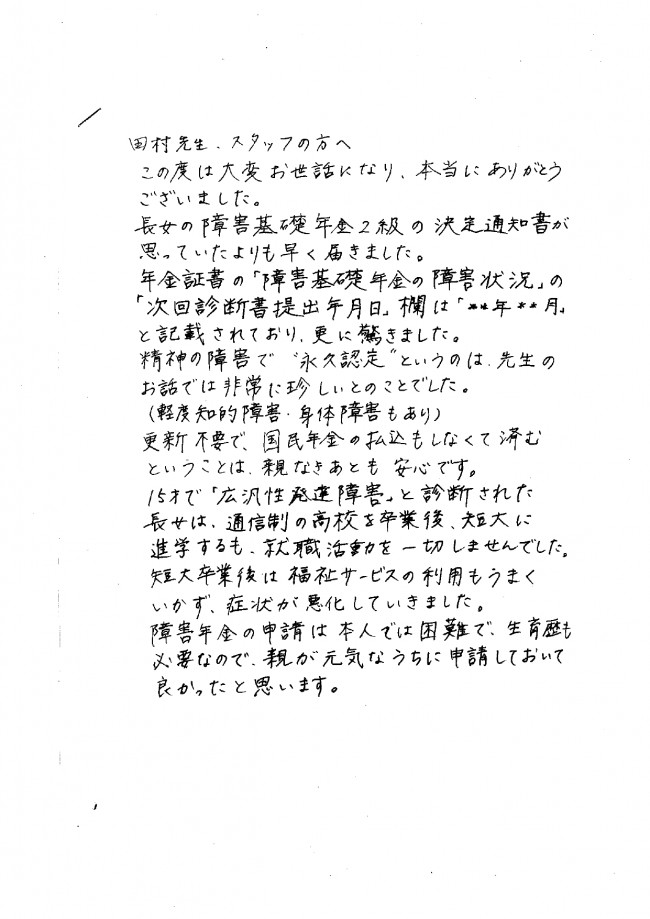 田村先生、スタッフの方へ
この度は大変お世話になり、本当にありがとう
ございました。
長女の障害基礎年金2級の決定通知書が
思っていたよりも早く届きました。
年金証書の「障害基礎年金の障害状況」の
「次回診断書提出年月日」欄は「**年**月」
と記載されており、更に驚きました。
精神の障害で“永久認定”というのは、先生の
お話では非常に珍しいとのことでした。
(軽度知的障害・身体障害もあり)
更新不要で、国民年金の払込もしなくて済む
ということは、親なきあとも安心です。
15才で「広汎性発達障害」と診断された
長女は、通信制の高校を卒業後、短大に
進学するも、就職活動を一切しませんでした。
短大卒業後は福祉サービスの利用もうまく
いかず、症状が悪化していきました。
障害年金の申請は本人では困難で、生育歴も
必要なので、親が元気なうちに申請しておいて
良かったと思います。